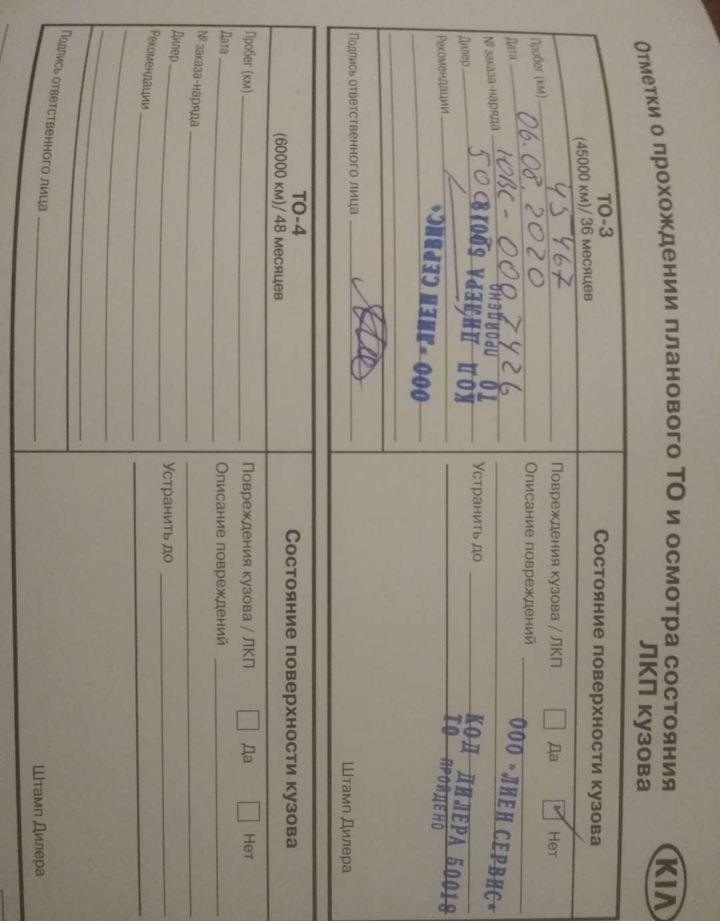 Отметки о прохождении планового ТО и осмотра состояния
ЛКП кузова
KIA
ТО-3
(45000 км)/ 36 месяцев
Пробег (км) 45 467
Дата 06.08.2020
№ заказа-наряда ЮВС-0092426
Дилер 500
Рекомендации
ТО ПРОЙДЕНО
КОД ДИЛЕРА 50018
ООО "ЛИЕН СЕРВИС"
Подпись ответственного лица
Состояние поверхности кузова
Повреждения кузова / ЛКП Да Нет
Описание повреждений
Устранить до
ООО "ЛИЕН СЕРВИС"
КОД ДИЛЕРА 50018
ТО ПРОЙДЕНО
Штамп Дилера
ТО-4
(60000 км)/ 48 месяцев
Пробег (км)
Дата
№ заказа-наряда
Дилер
Рекомендации
Подпись ответственного лица
Состояние поверхности кузова
Повреждения кузова / ЛКП Да Нет
Описание повреждений
Устранить до
Штамп Дилера